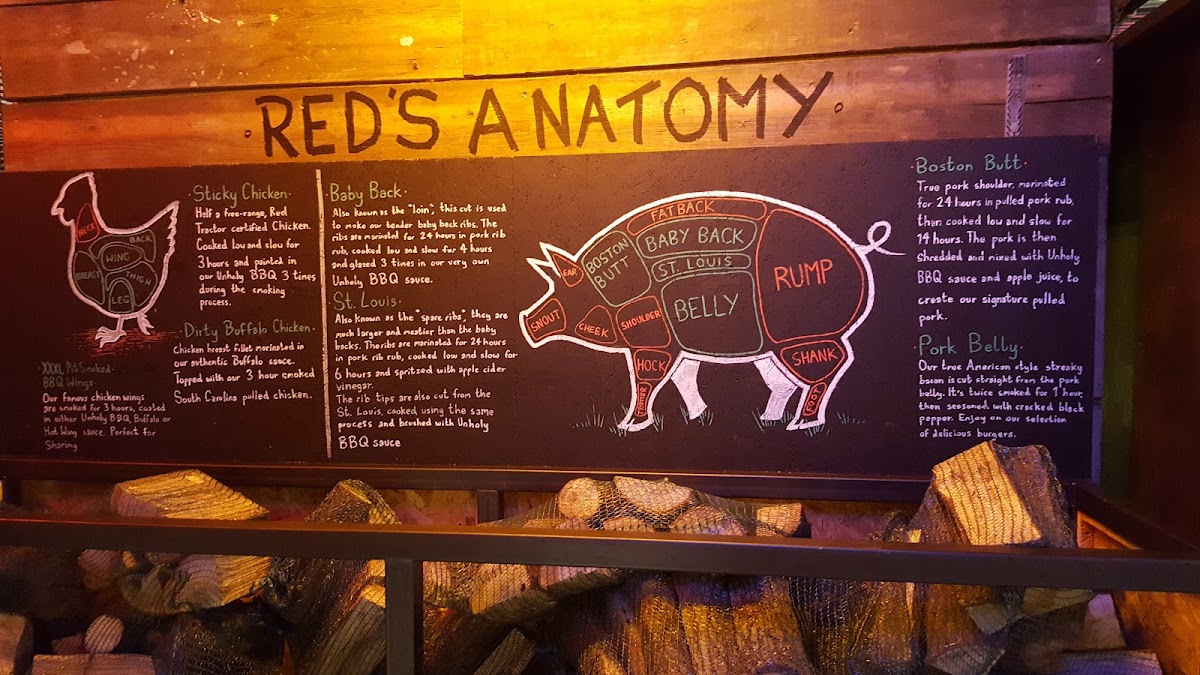 ·RED'S ANATOMY·
NECK
BACK
WING
BREAST
THIGH
LEG
XXXL Pit Smoked
BBQ Wings·
Our famous chicken wings
are smoked for 3 hours, coated
in either Unholy BBQ, Buffalo or
Hot Wing sauce. Perfect for
Sharing
·Sticky Chicken·
Half a free-range, Red
Tractor certified Chicken.
Cooked low and slow for
3 hours and painted in
our Unholy BBQ 3 times
during the smoking
process.
·Dirty Buffalo Chicken·
Chicken breast fillet marinated in
our authentic Buffalo sauce.
Topped with our 3 hour smoked
South Carolina pulled chicken.
·Baby Back·
Also known as the "loin", this cut is used
to make our tender baby back ribs. The
ribs are marinated for 24 hours in pork rib
rub, cooked low and slow for 4 hours
and glazed 3 times in our very own
Unholy BBQ sauce.
·St. Louis·
Also known as the "spare ribs", they are
much larger and meatier than the baby
backs. The ribs are marinated for 24 hours
in pork rib rub, cooked low and slow for
6 hours and spritzed with apple cider
vinegar.
The rib tips are also cut from the
St. Louis, cooked using the same
process and brushed with Unholy
BBQ sauce
FAT BACK
BOSTON
BUTT
BABY BACK
ST. LOUIS
EAR
RUMP
BELLY
SNOUT
CHEEK
SHOULDER
HOCK
SHANK
TROTTER
FOOT
·Boston Butt·
True pork shoulder, marinated
for 24 hours in pulled pork rub,
then cooked low and slow for
14 hours. The pork is then
shredded and mixed with Unholy
BBQ sauce and apple juice, to
create our signature pulled
pork.
·Pork Belly·
Our true American style streaky
bacon is cut straight from the pork
belly. It's twice smoked for 1 hour,
then seasoned with cracked black
pepper. Enjoy on our selection
of delicious burgers.